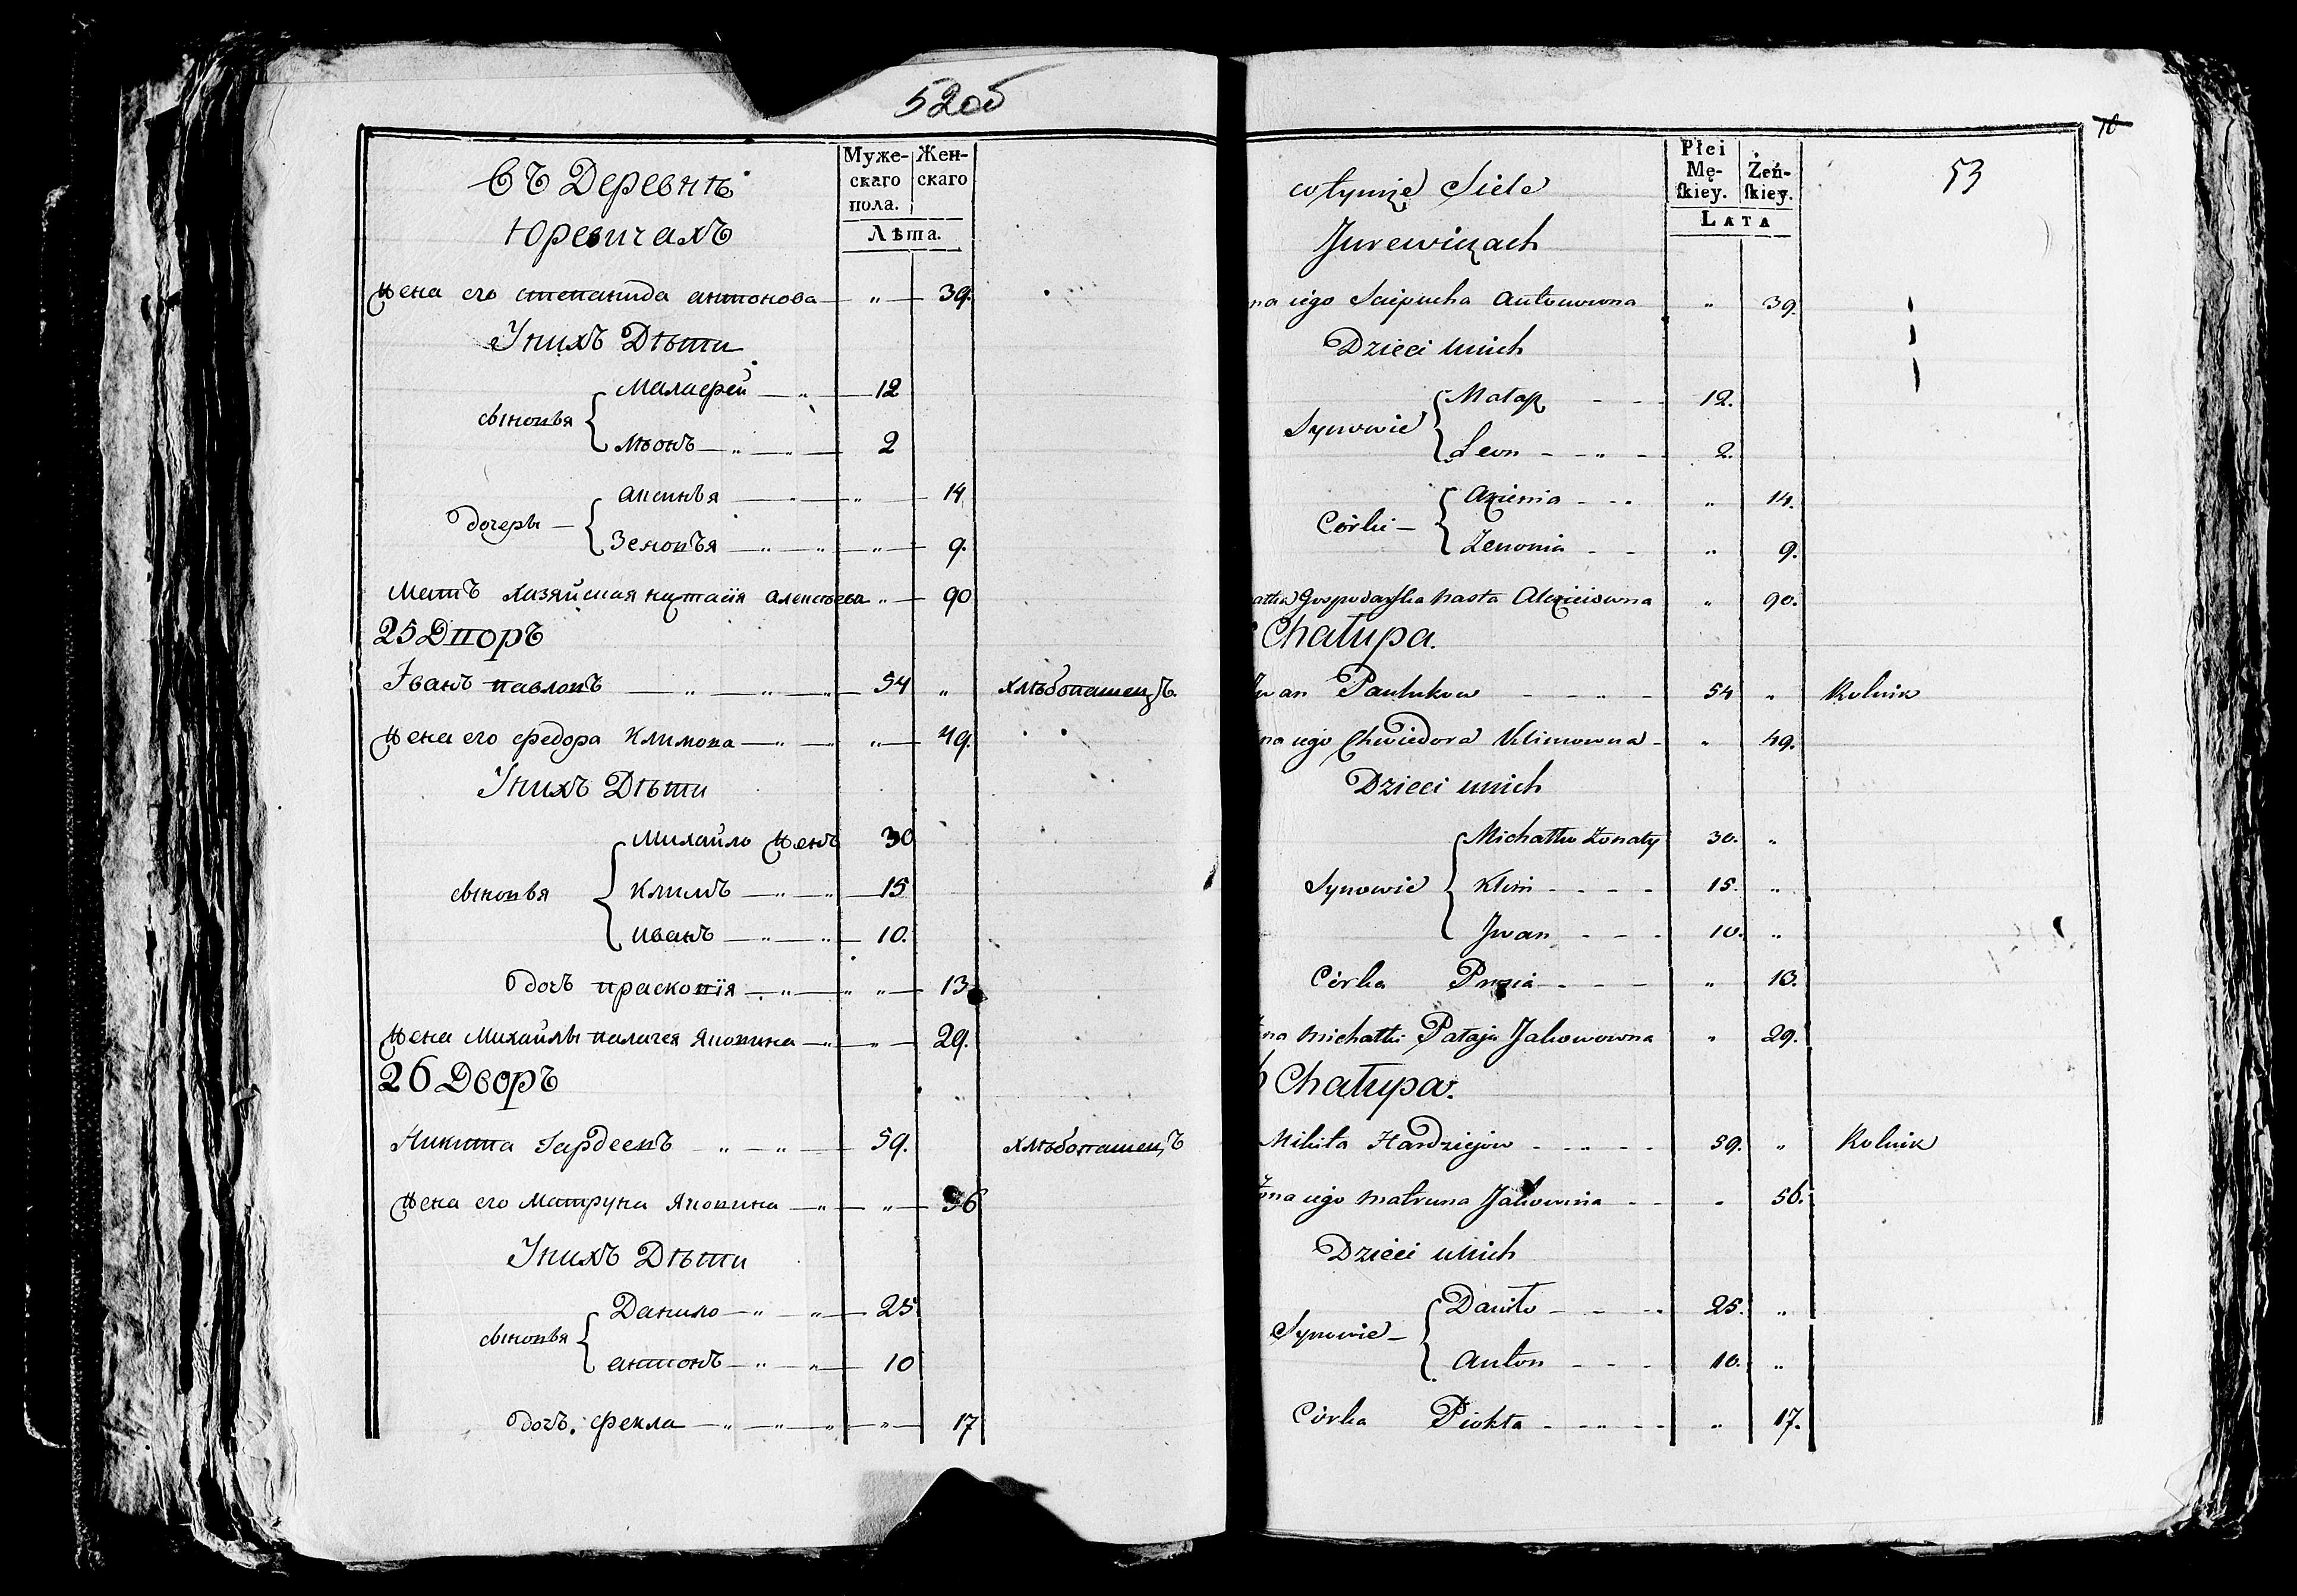 52об
Въ Деревнѣ
Юревичахъ
Муже-скаго пола. Жен-скаго
Лѣта.
жена его степанида антонова — „ — 39.
Унихъ Дѣти
сыновья
Малафей — „ — 12
Лѣонъ — „ — „ — 2
дочеры —
аксинья — „ — 14
Зеновья — „ — „ — „ — 9.
Мать хазяйская настасiя алексѣева „ — 90
25 Дворъ
Iванъ павловъ — „ — „ — „ — 54 „ хлѣбопашецъ.
жена его федора Климова — „ — „ — 49.
Унихъ Дѣти
сыновья
Михайло жен: 30
Климъ — „ — „ — 15
иванъ — „ — „ — 10.
дочъ прасковiя — „ — „ — „ — 13
жена Михайлы палагея Яковива — „ — „ — 29.
26 Дворъ
Никита Гардеевъ — „ — „ — 59. хлѣбопашецъ
жена его Матруна Яковива — „ — „ — 56
Унихъ Дѣти
сыновья
Данило — „ — „ — 25
антонъ — „ — „ — 10
дочъ. фекла — „ — „ — „ — „ — 17
10
53
wtymże Siele
Jurewiczach
Płci Mę-ſkiey. Żeń-ſkiey.
LATA
na iego Sciepucha Antonowna „ 39.
Dzieci unich
Synowie
Małap - - 12.
Leon - - „ - 2.
Córki —
Axienia - - „ „ 14.
Zenowia - - „ 9.
atka Gospodarska Nasta Alexieiowna „ 90.
Chałupa.
Iwan Pawlukow - - „ - 54 „ Rolnik
na iego Chwiedora Klimowna - „ 49.
Dzieci unich
Synowie
Michałko żonaty 30. „
Klim - - - - 15. „
Jwan - - - 10. „
Córka Prosia - - - „ 13.
na Michałki Pałaja Jakowowna „ 29.
6 Chałupa.
Mikita Hardziejow - - - - 59. „ Rolnik
żona iego Matruna Jakowna - - „ 56.
Dzieci unich
Synowie —
Daniło - - - 25. „
Anton - - - 10. „
Córka Piokła - - „ - - „ 17.